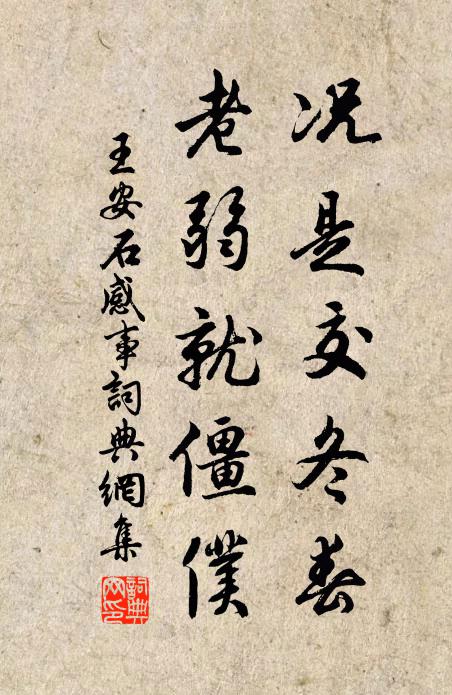 况是交冬春
老弱就僵僕
王安石感事詞典網集
詞典網印